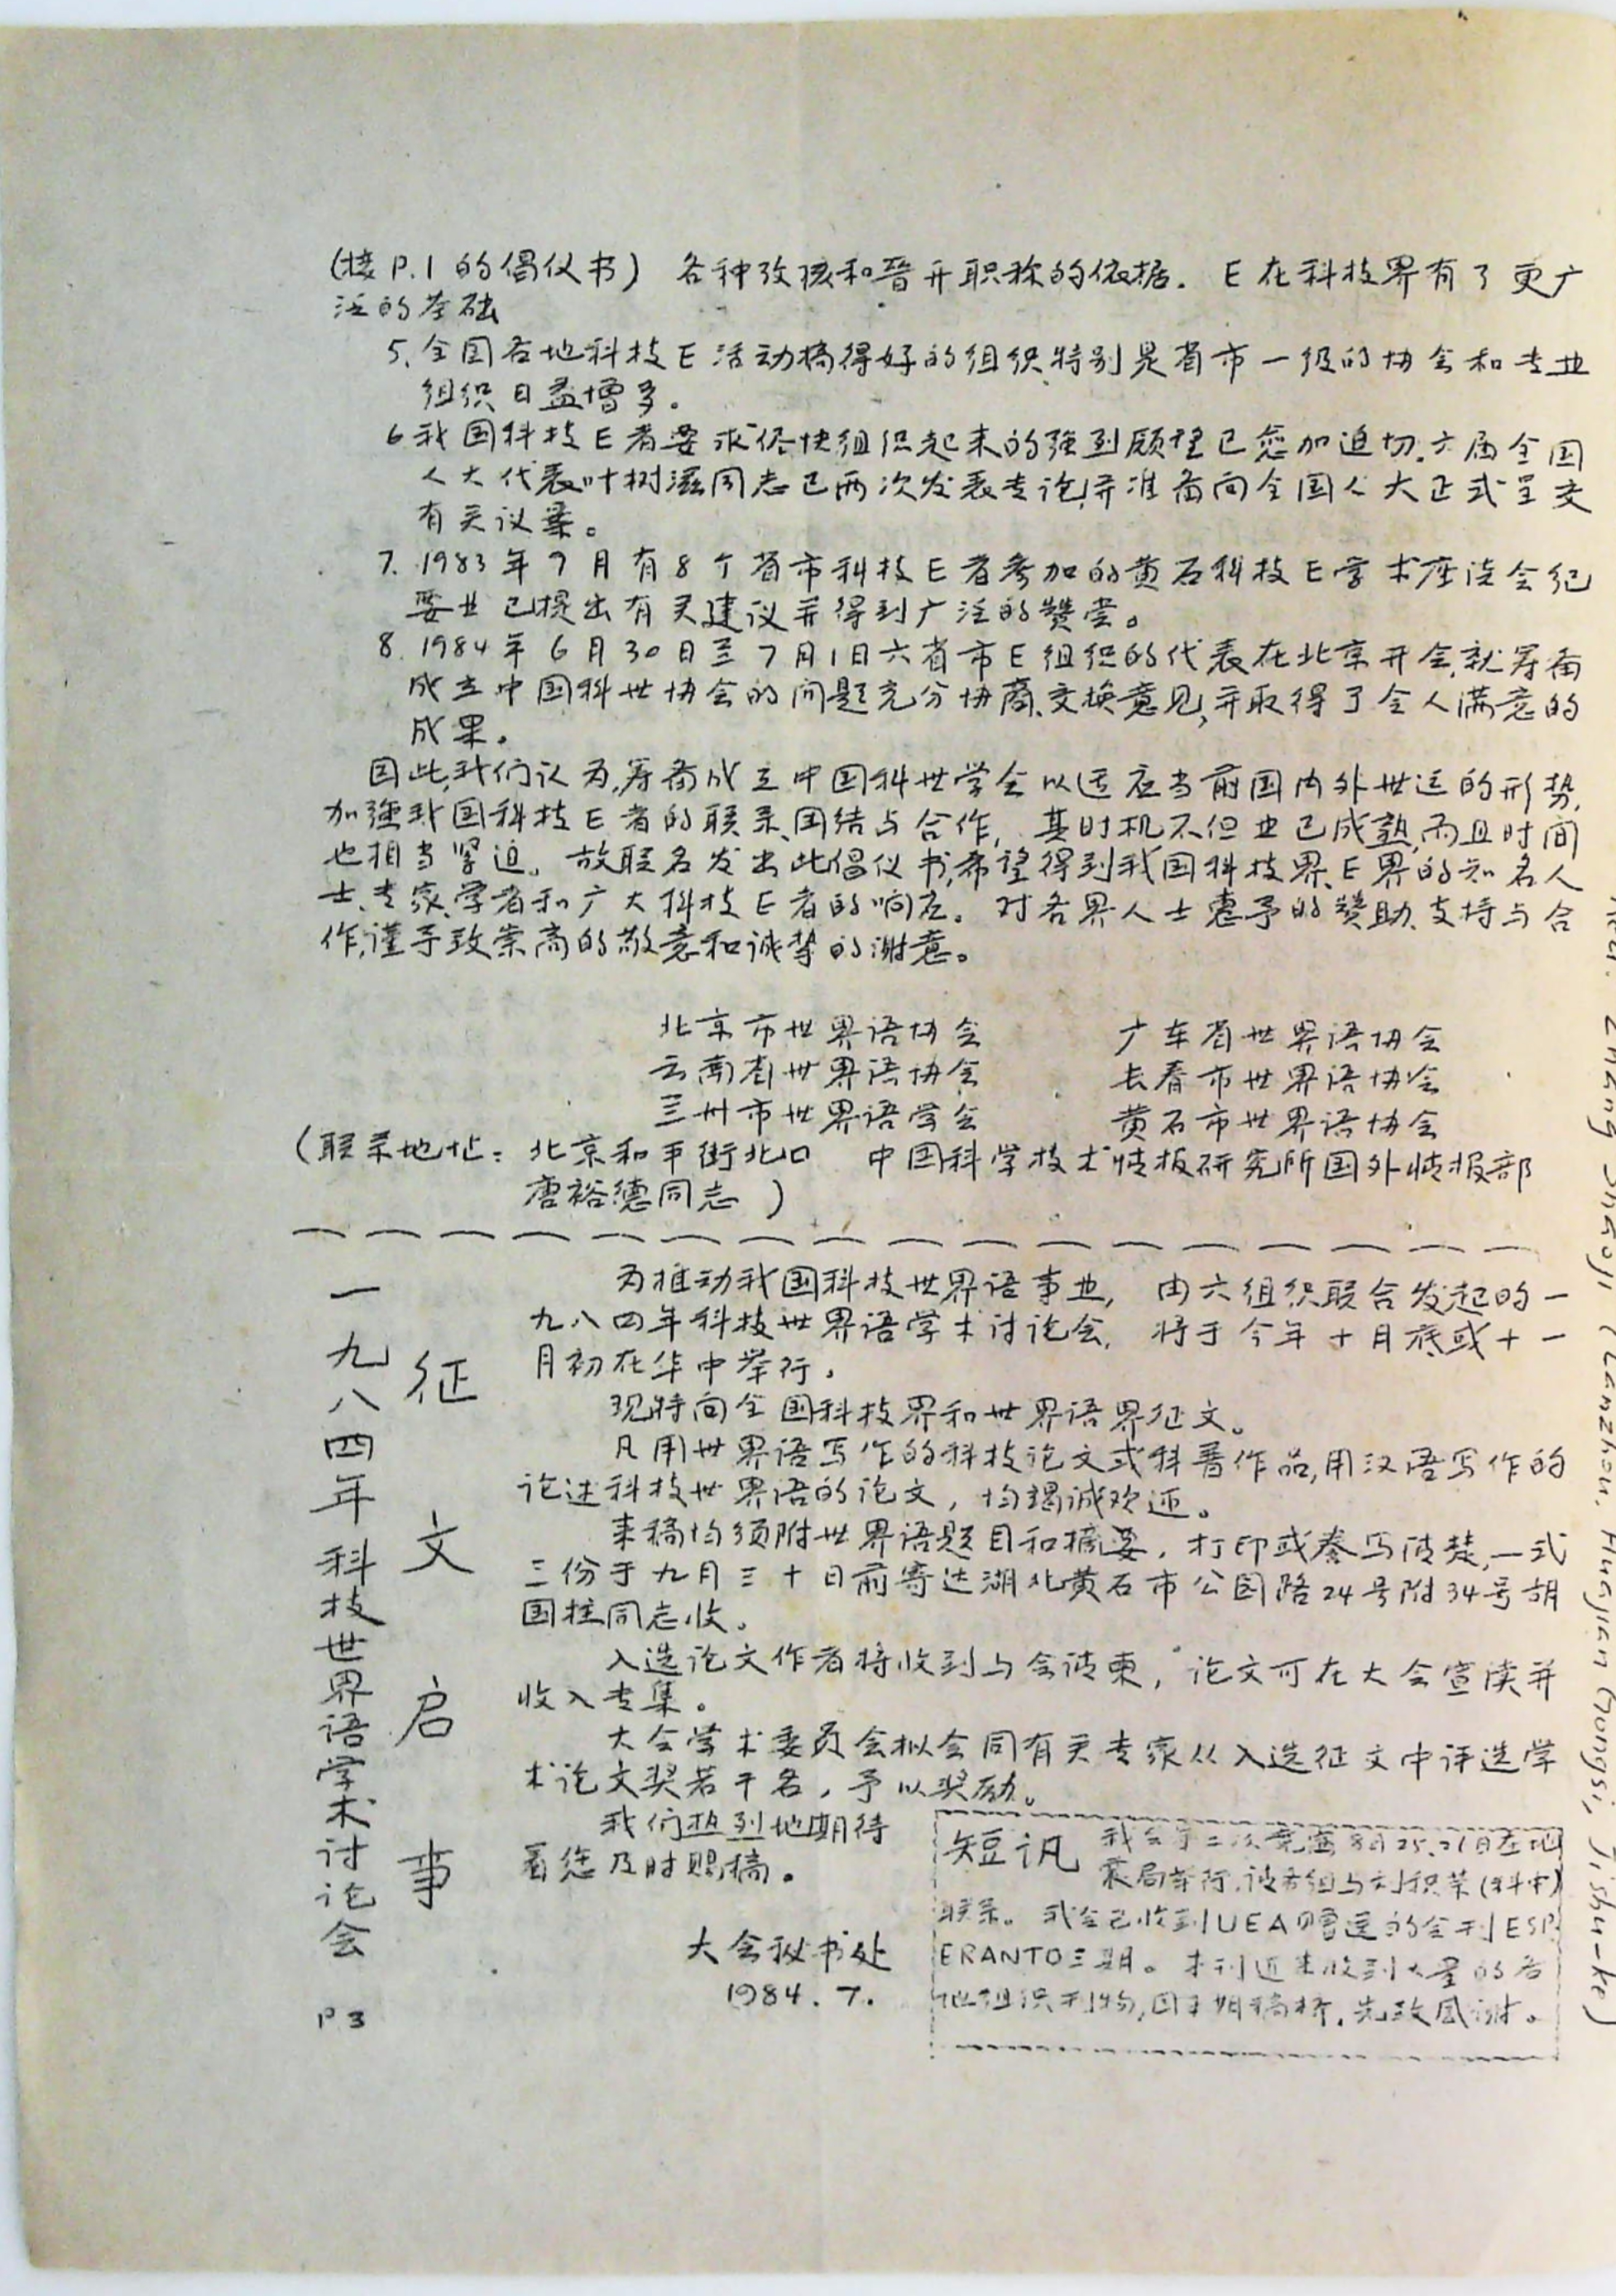 (接P.1的倡仪书) 各种考核和晋升职称的依据. E在科技界有了更广
泛的基础
5.全国各地科技E活动搞得好的组织,特别是省市一级的协会和专业
组织日益增多。
6我国科技E者要求尽快组织起来的强烈愿望已愈加迫切.六届全国
人大代表叶树滋同志已两次发表专论,并准备向全国人大正式呈交
有关议案。
7. 1983年9月有8个省市科技E者参加的黄石科技E学术座谈会纪
要业已提出有关建议并得到广泛的赞尝。
8. 1984年6月30日至7月1日六省市E组织的代表在北京开会,就筹备
成立中国科世协会的问题充分协商、交换意见,并取得了令人满意的
成果。
因此,我们认为,筹备成立中国科世学会以适应当前国内外世运的形势,
加强我国科技E者的联系、团结与合作, 其时机不但业已成熟,而且时间
也相当紧迫。故联名发出此倡仪书,希望得到我国科技界、E界的知名人
士、专家、学者和广大科技E者的响应。对各界人士惠予的赞助、支持与合
作,谨予致崇高的敬意和诚挚的谢意。
北京市世界语协会 广东省世界语协会
云南省世界语协会 长春市世界语协会
兰州市世界语学会 黄石市世界语协会
(联系地址: 北京和平街北口 中国科学技术情报研究所国外情报部
唐裕德同志)
一九八四年科技世界语学术讨论会
征文启事
为推动我国科技世界语事业, 由六组织联合发起的一
九八四年科技世界语学术讨论会, 将于今年十月底或十一
月初在华中举行。
现特向全国科技界和世界语界征文。
凡用世界语写作的科技论文或科普作品,用汉语写作的
论述科技世界语的论文, 均竭诚欢迎。
来稿均须附世界语题目和摘要, 打印或誊写清楚,一式
三份于九月三十日前寄达湖北黄石市公园路24号附34号胡
国柱同志收。
入选论文作者将收到与会请柬, 论文可在大会宣读并
收入专集。
大会学术委员会拟会同有关专家从入选征文中评选学
术论文奖若干名, 予以奖励。
我们热烈地期待
着您及时赐稿。
大会秘书处
1984. 7.
短讯 我会第二次竞赛8月25.26日在地
震局举行,请各组与刘积荣(科中)
联系。我会已收到UEA赠送的会刊ESP
ERANTO三期。本刊近来收到大量的各
地组织刊物,因于期稿挤,先致感谢。
P.3
Zhang Shaoji (Lanzhou, Huajian Gongsi, Jishu-ke)